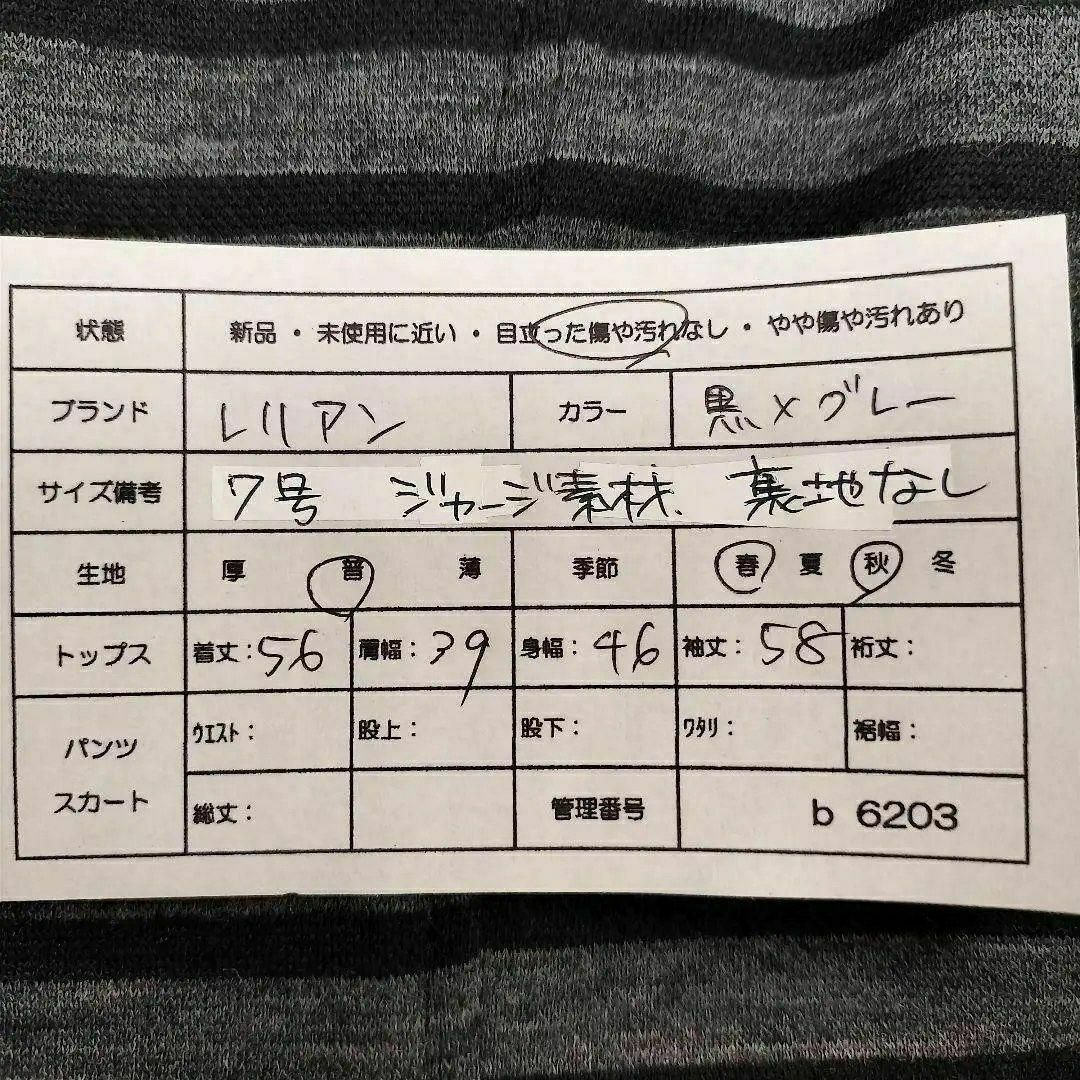 状態 新品・未使用に近い・目立った傷や汚れなし・やや傷や汚れあり
ブランド レリアン カラー 黒×グレー
サイズ備考 7号 ジャージ素材 裏地なし
生地 厚 普 薄 季節 春 夏 秋 冬
トップス 着丈:56 肩幅:39 身幅:46 袖丈:58 裄丈:
パンツ ウエスト: 股上: 股下: ワタリ: 裾幅:
スカート 総丈: 管理番号 b 6203